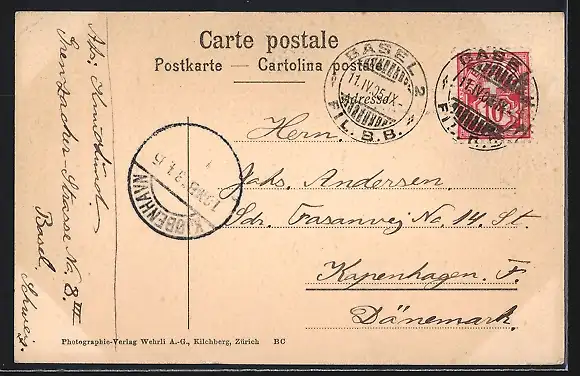 Carte postale
Postkarte — Cartolina postale
Adresse
BASEL 2
11.IV.05.IX
FIL. B.B.
BASEL
FIL.
10
KJØBENHAVN
Herrn.
Johs. Andersen.
Sdr. Fasanvej No. 14. St.
Kapenhagen. F.
Dänemark.
Abs:
Grenzacher-Strasse No. 8 III
Basel. Schweiz.
Photographie-Verlag Wehrli A.-G., Kilchberg, Zürich BC